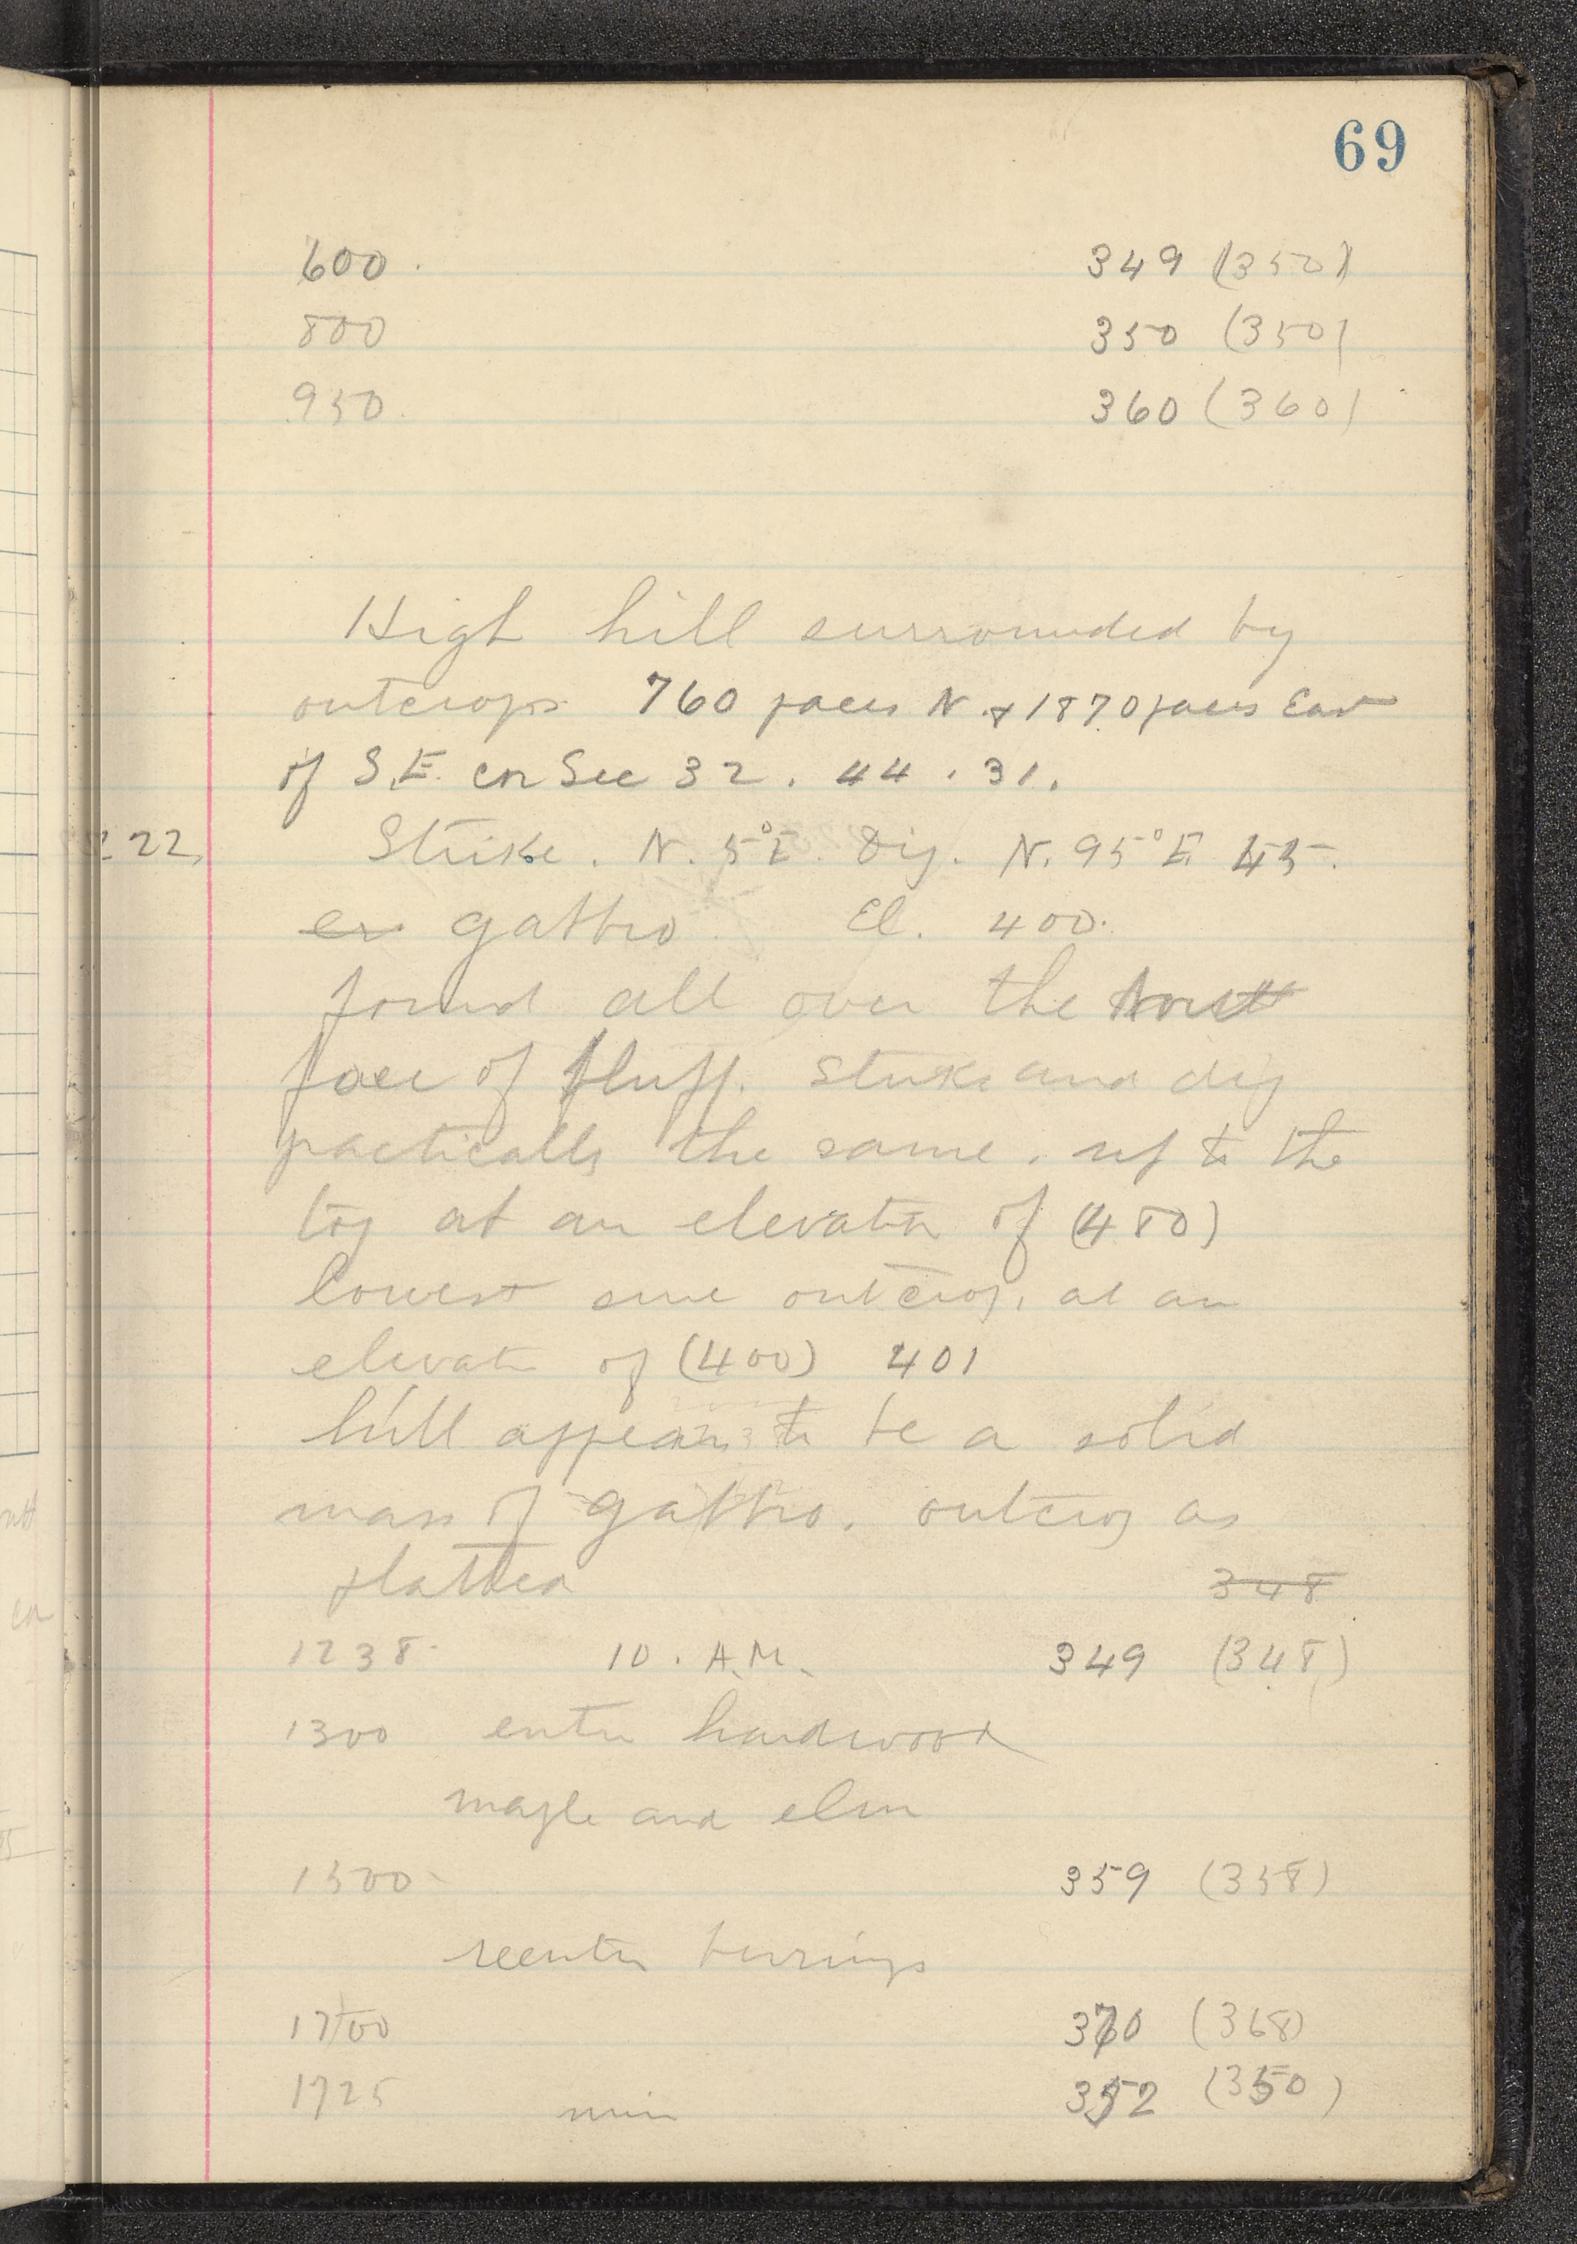 69
600. 349 (350)
800 350 (350)
950. 360 (360)
High hill surrounded by
outcrops 760 paces N. + 1870 paces East
of S.E. cor Sec 32. 44. 31.
22, Strike. N. 5°E. Dip. N. 95°E. 45.
gabbro. El. 400.
found all over the
face of bluff. Strike and dip
practically the same. up to the
top at an elevation of (480)
lowest one outcrop, at an
elevation of (400) 401
hill appears to be a solid
mass of gabbro. outcrop as
348
1238. 10. A.M. 349 (348)
1300 enter hardwood
maple and elm
1500. 359 (358)
reenter burnings
1700 370 (368)
1725 min 352 (350)